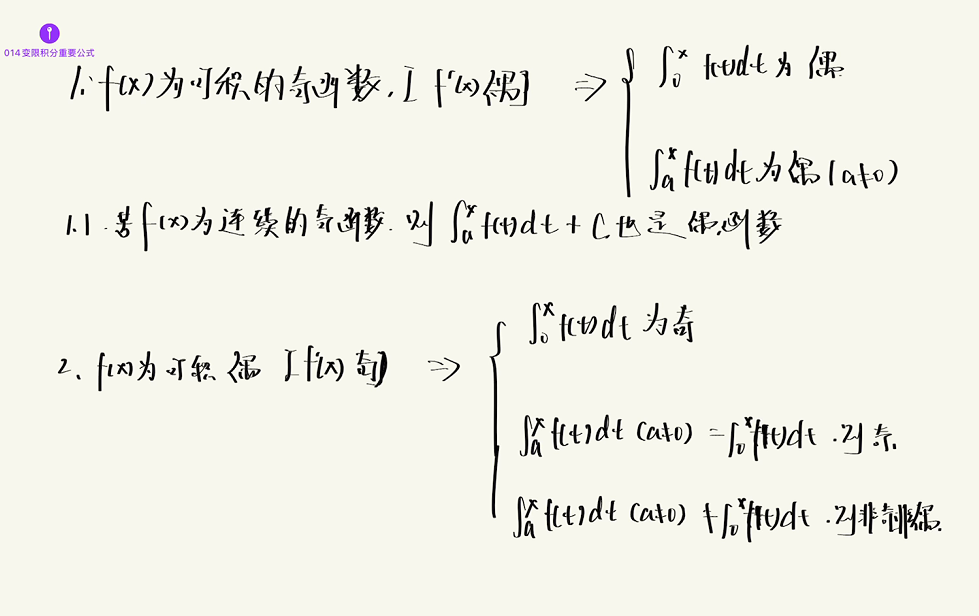 014变限积分重要公式
1. f(x)为可积的奇函数, [f'(x)偶] ⇒ { ∫₀ˣ f(t)dt 为 偶
∫ₐˣ f(t)dt 为 偶 (a≠0)
1.1 若 f(x)为连续的奇函数. 则 ∫ₐˣ f(t)dt + C 也是 偶函数
2、f(x)为可积 偶 [f'(x) 奇] ⇒ { ∫₀ˣ f(t)dt 为奇
∫ₐˣ f(t)dt (a≠0) = ∫₀ˣ f(t)dt . 则 奇.
∫ₐˣ f(t)dt (a≠0) ≠ ∫₀ˣ f(t)dt . 则非奇非偶.